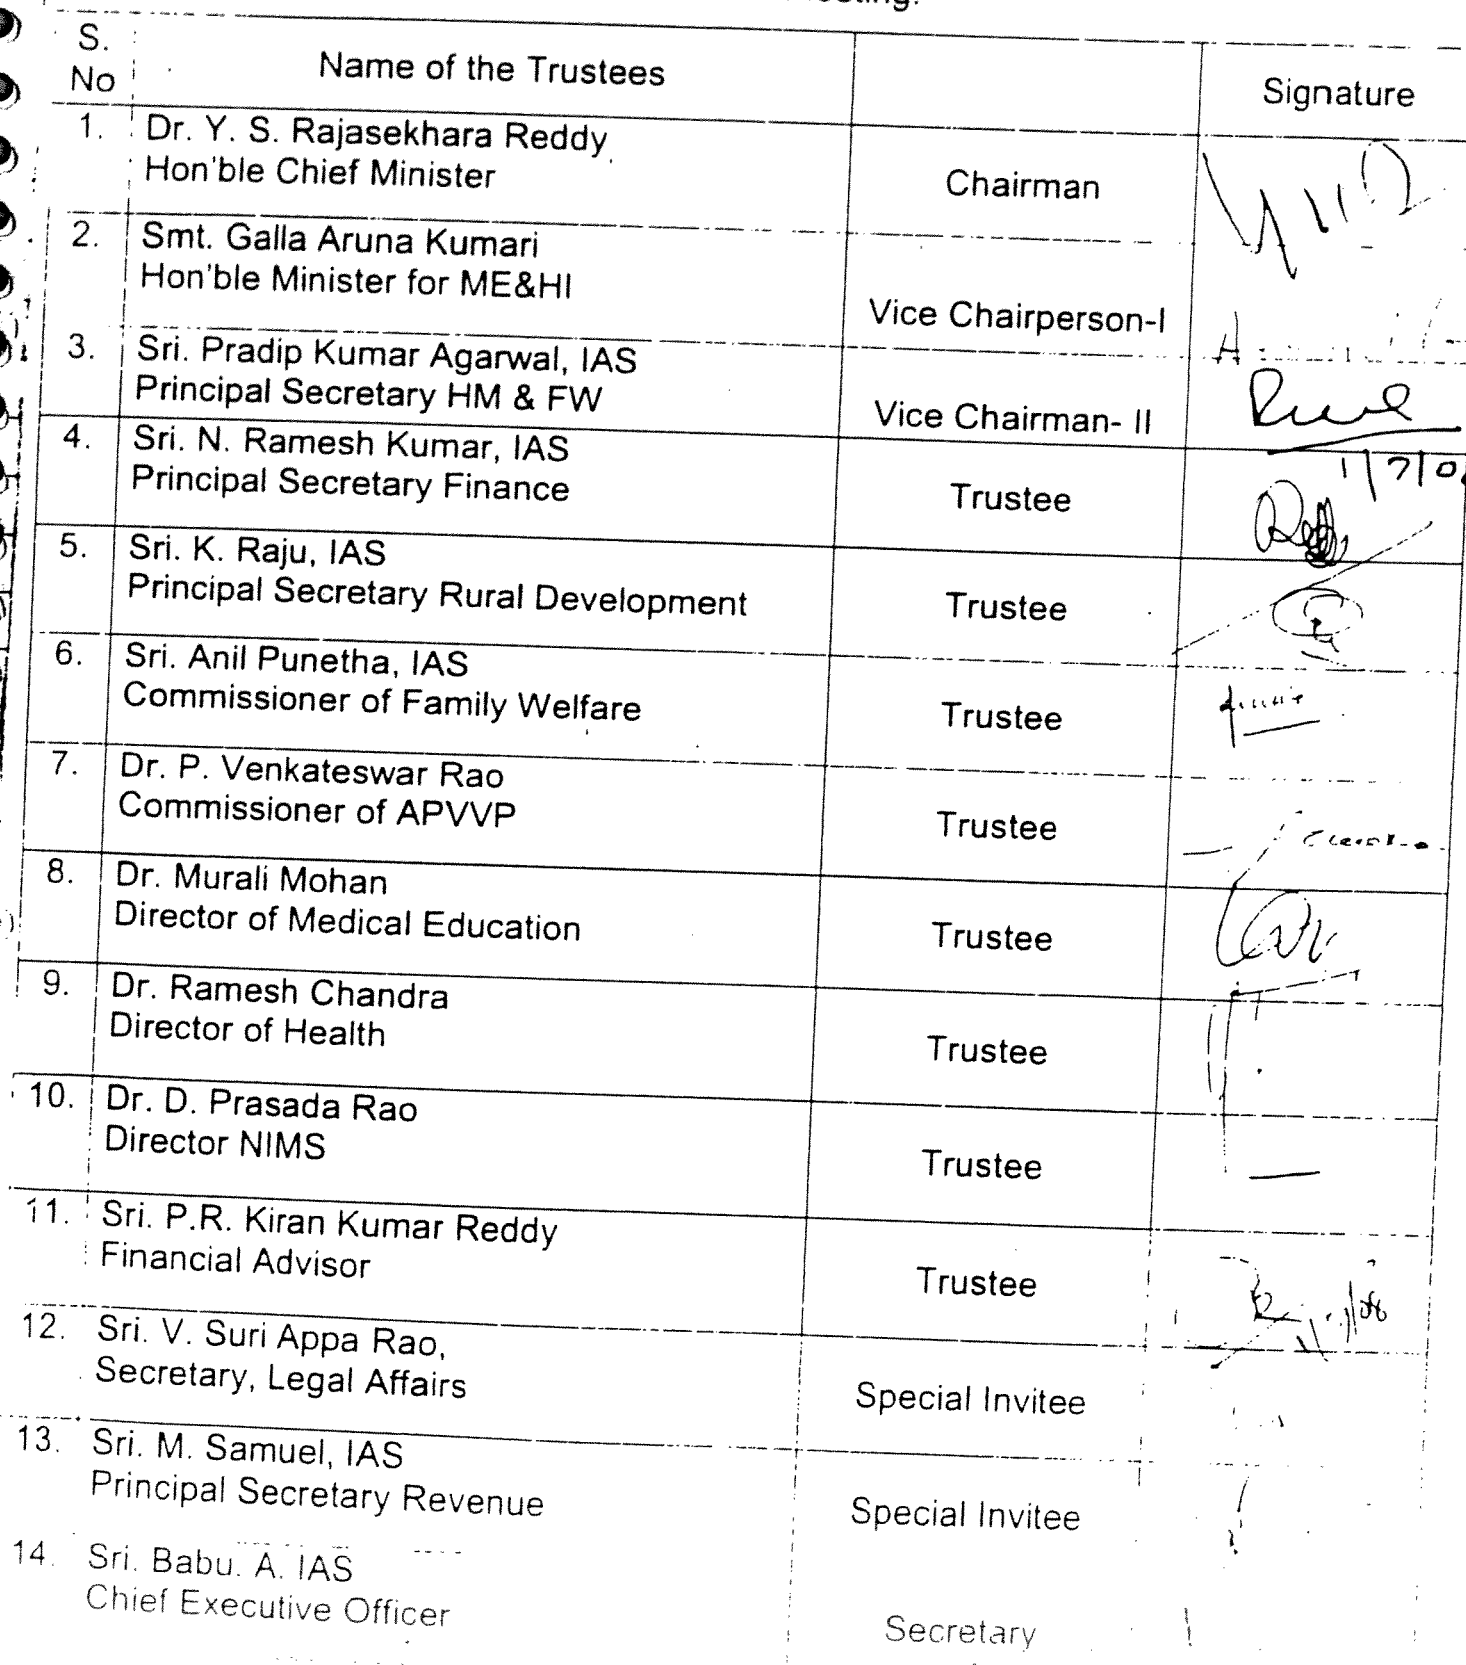 S.
No
Name of the Trustees
Signature
1.
Dr. Y. S. Rajasekhara Reddy
Hon'ble Chief Minister
Chairman
2.
Smt. Galla Aruna Kumari
Hon'ble Minister for ME&HI
Vice Chairperson-I
3.
Sri. Pradip Kumar Agarwal, IAS
Principal Secretary HM & FW
Vice Chairman- II
4.
Sri. N. Ramesh Kumar, IAS
Principal Secretary Finance
Trustee
5.
Sri. K. Raju, IAS
Principal Secretary Rural Development
Trustee
6.
Sri. Anil Punetha, IAS
Commissioner of Family Welfare
Trustee
7.
Dr. P. Venkateswar Rao
Commissioner of APVVP
Trustee
8.
Dr. Murali Mohan
Director of Medical Education
Trustee
9.
Dr. Ramesh Chandra
Director of Health
Trustee
10.
Dr. D. Prasada Rao
Director NIMS
Trustee
11.
Sri. P.R. Kiran Kumar Reddy
Financial Advisor
Trustee
12.
Sri. V. Suri Appa Rao,
Secretary, Legal Affairs
Special Invitee
13.
Sri. M. Samuel, IAS
Principal Secretary Revenue
Special Invitee
14.
Sri. Babu. A. IAS
Chief Executive Officer
Secretary